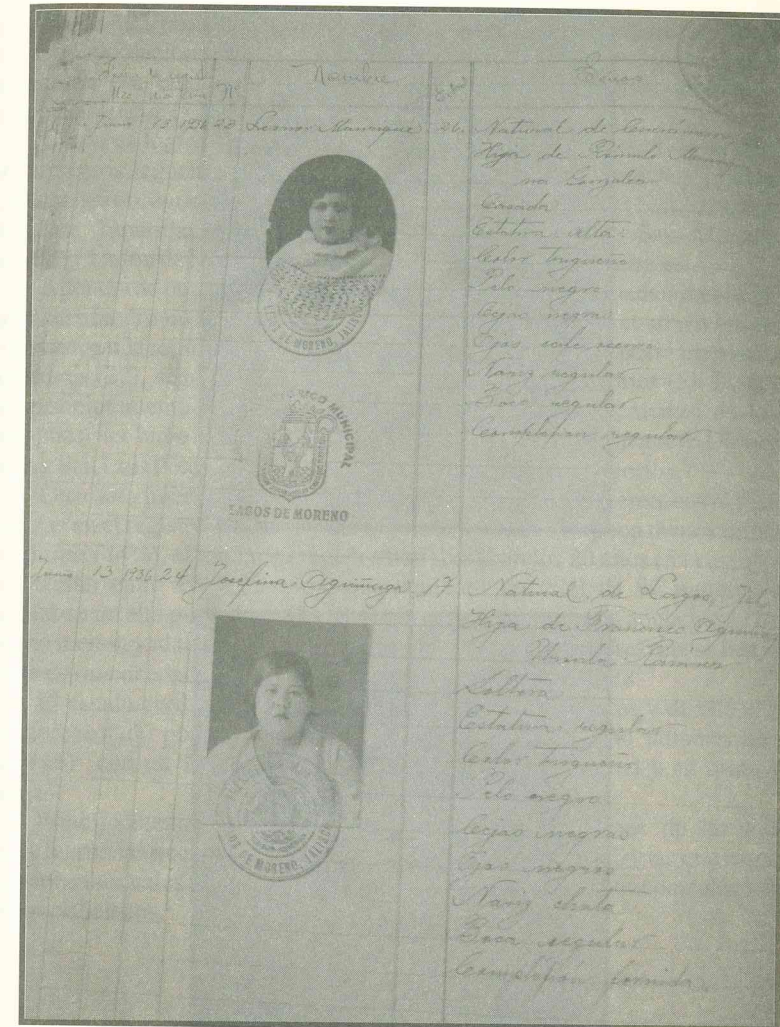 Nombre
Edad
Junio 13 1936 23 Leonor Manrique 26. Natural de
Hija de Rómulo
González
Casada
Estatura alta
Color trigueño
Pelo negro
Cejas negras
Ojos
Nariz regular
Boca regular
Complexion regular
DE MORENO, JALISCO
MUNICIPAL
LAGOS DE MORENO
Junio 13 1936 24 Josefina Aguiñaga 17 Natural de Lagos, Jal
Hija de
Ramírez
Soltera
Estatura regular
Color trigueño
Pelo negro
Cejas negras
Ojos negros
Nariz chata
Boca regular
Complexion fornida.
OS DE MORENO, JALISCO